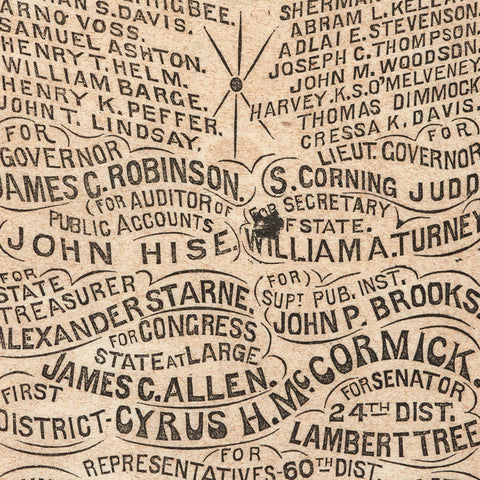 S.DAVIS.
ARNO VOSS.
SAMUEL ASHTON.
HENRY T. HELM.
WILLIAM BARGE.
HENRY K. PEFFER.
JOHN T. LINDSAY.
SHERMAN
ABRAM L. KELLER
ADLAI E. STEVENSON.
JOSEPH C. THOMPSON.
JOHN M. WOODSON.
HARVEY. K.S. O'MELVENEY.
THOMAS DIMMOCK
CRESSA K. DAVIS.
FOR
GOVERNOR
JAMES C. ROBINSON.
FOR
LIEUT. GOVERNOR
S. CORNING JUDD
FOR AUDITOR OF
PUBLIC ACCOUNTS
JOHN HISE.
FOR SECRETARY
OF STATE.
WILLIAM A. TURNEY
FOR
STATE
TREASURER
ALEXANDER STARNE.
FOR
SUPT PUB. INST.
JOHN P. BROOKS.
FOR CONGRESS
STATE AT LARGE
JAMES C. ALLEN.
FIRST
DISTRICT- CYRUS H. McCORMICK.
FOR SENATOR
24TH DIST.
LAMBERT TREE
FOR
REPRESENTATIVES-60TH DIST.